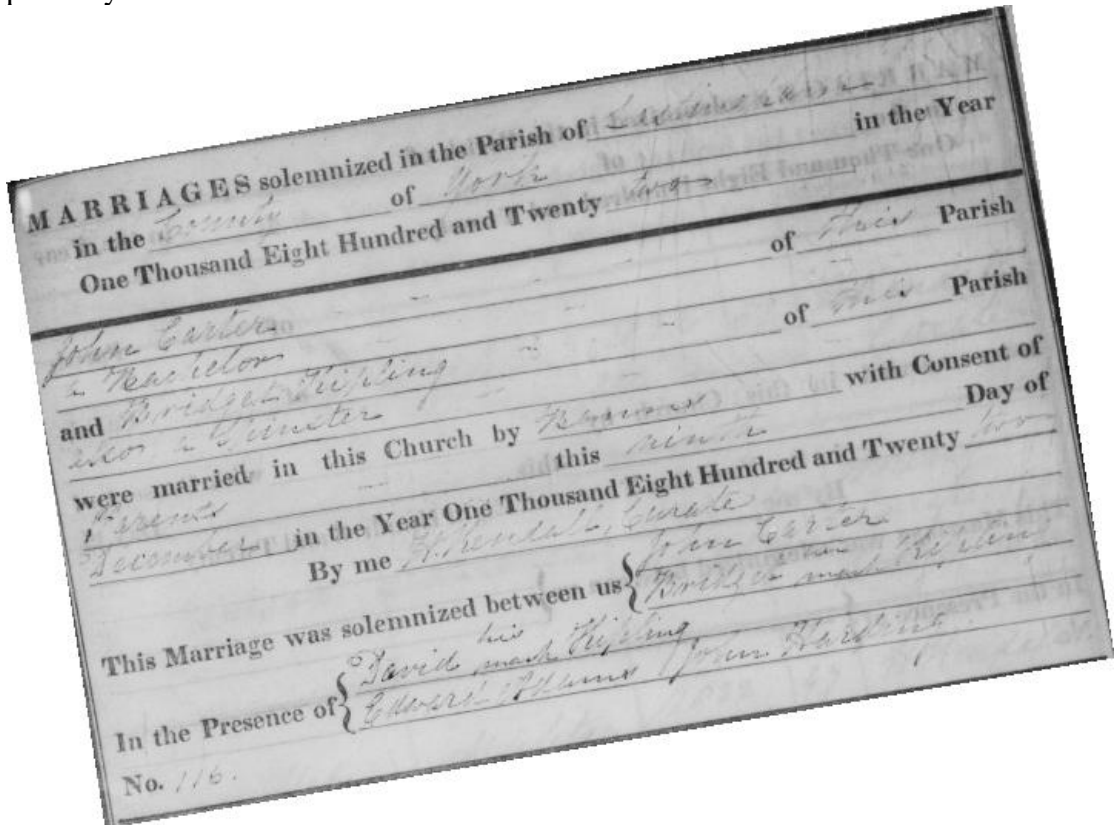 MARRIAGES solemnized in the Parish of
in the County of York in the Year
One Thousand Eight Hundred and Twenty two
John Carter of this Parish
a Bachelor
and Bridget Kipling of this Parish
also a Spinster
were married in this Church by Banns with Consent of
Parents this ninth Day of
December in the Year One Thousand Eight Hundred and Twenty two
By me Kendall, Curate
This Marriage was solemnized between us { John Carter
Bridget mark Kipling
In the Presence of { David his mark Kipling
Edward Adams John
No. 116.